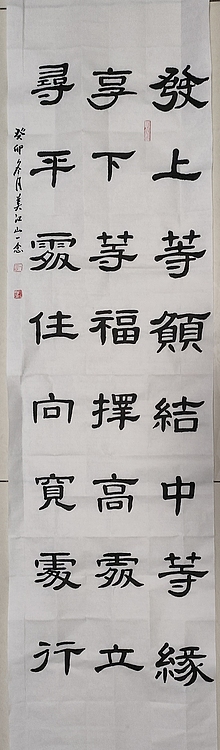 發上等願結中等緣
享下等福擇高處立
尋平處住向寬處行
癸卯冬月美江山一忞